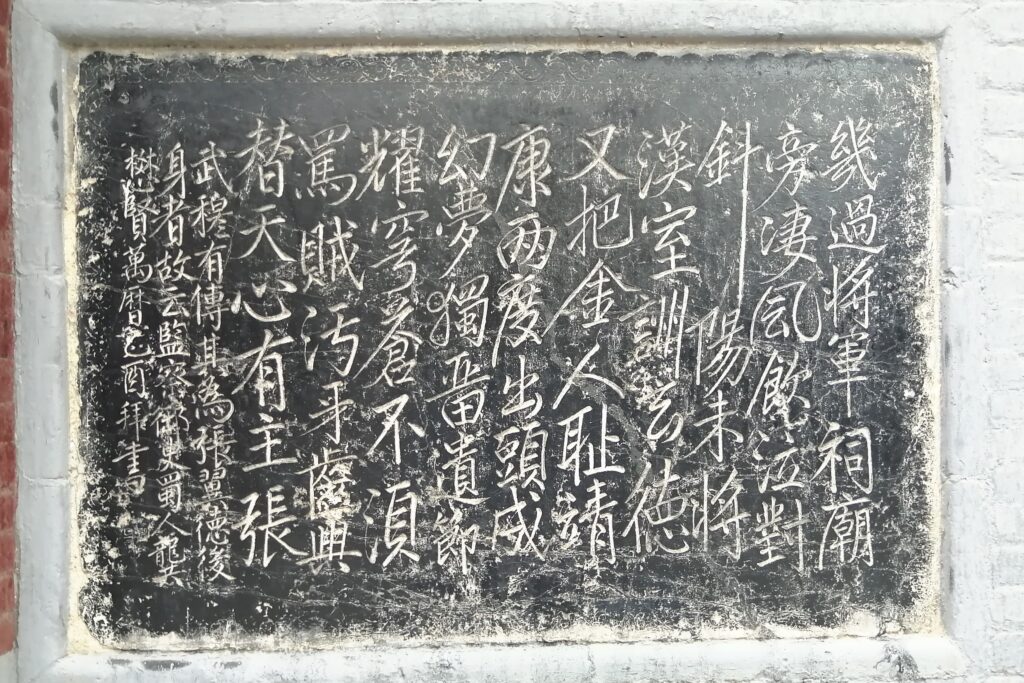 幾過將軍祠廟
旁淒風飲泣對
斜陽未將
漢室詶玄德
又把金人耻靖
康兩度出頭威
幻夢獨畱遺節
耀穹蒼不須
罵賊污牙齒興
替天心有主張
武穆有傳其為張翼德後
身者故云監察御史蜀人龔
懋賢萬曆酉拜書